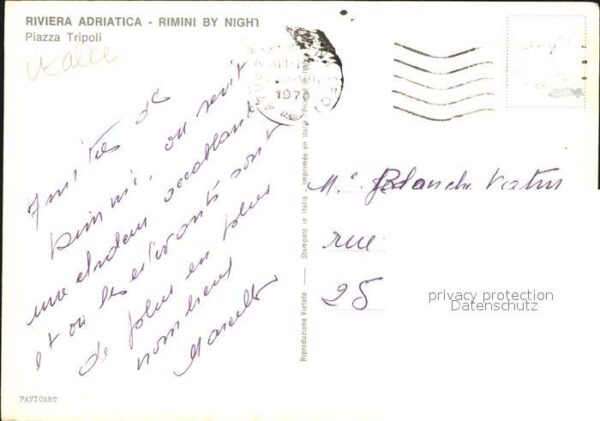 RIVIERA ADRIATICA - RIMINI BY NIGHT
Piazza Tripoli
Italie
1976
Amitiés de
Rimini, où sévit
une chaleur accablante
et où les estivants sont
de plus en plus
nombreux
Marcelle
Riproduzione Vietata — Stampato in Italia - Imprimée en Italie - Printed in Italy
Mme Blanche
rue
25
privacy protection
Datenschutz
PAVICART